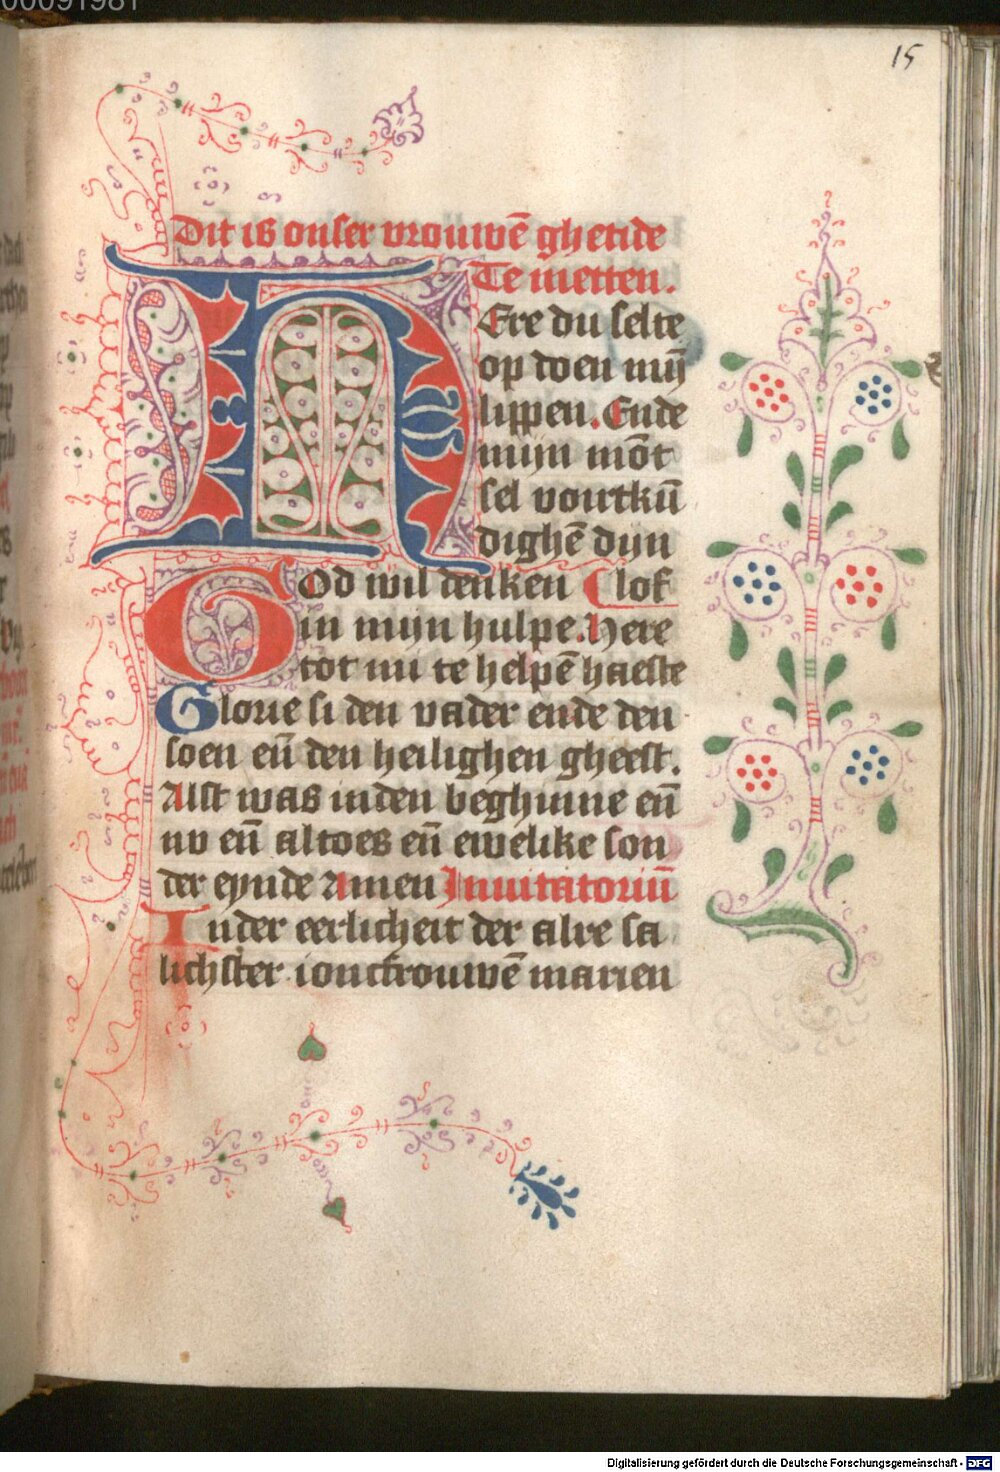 15
Dit is onser vrouwē ghetide
Te metten.
HEre du selte
op doen mijn
lippen. Ende
mijn mōt
sel vourtkū
dighē dijn
God wil denken lof
in mijn hulpe. Here
tot mi te helpē haeste
Glorie si den vader ende den
soen eñ den heilighen gheest.
Alst was inden beghinne eñ
nv eñ altoes eñ ewelike son
der eynde Amen Inuitatoriū
In der eerlicheit der alre sa
lichster ioncfrouwē marien
Digitalisierung gefördert durch die Deutsche Forschungsgemeinschaft - DFG